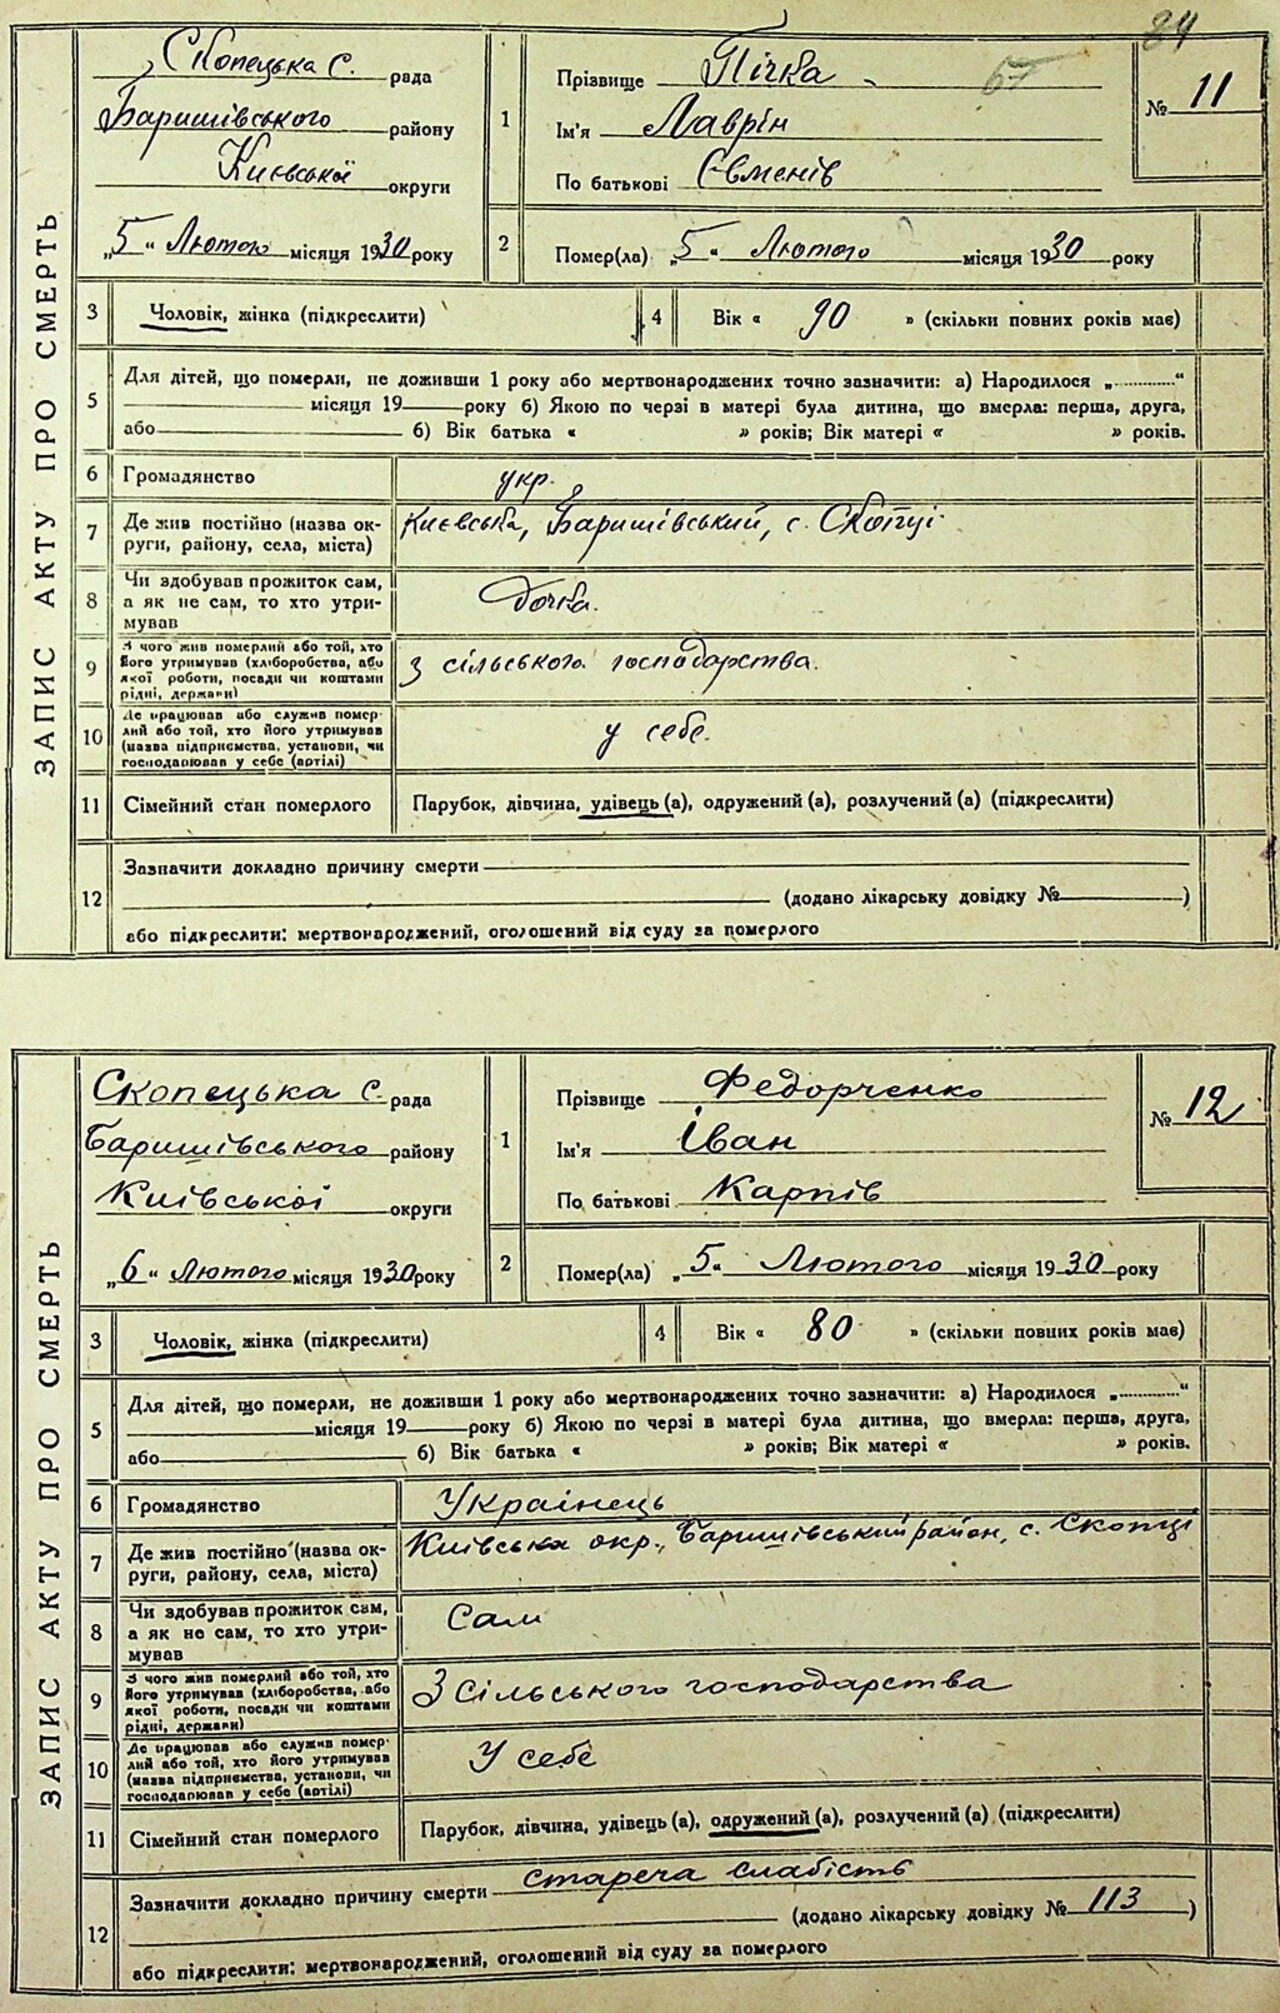 84
67
ЗАПИС АКТУ ПРО СМЕРТЬ
Скопецька с. рада
Баришівського району
Києвської округи
„5“ Лютого місяця 1930 року
1 Прізвище Пічка
Ім'я Лаврін
По батькові Євменів
№ 11
2 Помер(ла) „5“ Лютого місяця 1930 року
3 Чоловік, жінка (підкреслити)
4 Вік « 90 » (скільки повних років має)
5 Для дітей, що померли, не доживши 1 року або мертвонароджених точно зазначити: а) Народилося „............“
місяця 19 року б) Якою по черзі в матері була дитина, що вмерла: перша, друга,
або б) Вік батька « » років; Вік матері « » років.
6 Громадянство укр.
7 Де жив постійно (назва ок-
руги, району, села, міста) Києвська, Баришівський, с. Скопці
8 Чи здобував прожиток сам,
а як не сам, то хто утри-
мував Дочка.
9 З чого жив померлий або той, хто
його утримував (хліборобства, або
якої роботи, посади чи коштами
рідні, держави) З сільського господарства.
10 Де працював або служив помер-
лий або той, хто його утримував
(назва підприємства, установи, чи
господарював у себе (артілі) у себе.
11 Сімейний стан померлого Парубок, дівчина, удівець (а), одружений (а), розлучений (а) (підкреслити)
12 Зазначити докладно причину смерти
(додано лікарську довідку № )
або підкреслити: мертвонароджений, оголошений від суду за померлого
ЗАПИС АКТУ ПРО СМЕРТЬ
Скопецька с. рада
Баришівського району
Київської округи
„6“ Лютого місяця 1930 року
1 Прізвище Федорченко
Ім'я Іван
По батькові Карпів
№ 12
2 Помер(ла) „5“ Лютого місяця 1930 року
3 Чоловік, жінка (підкреслити)
4 Вік « 80 » (скільки повних років має)
5 Для дітей, що померли, не доживши 1 року або мертвонароджених точно зазначити: а) Народилося „............“
місяця 19 року б) Якою по черзі в матері була дитина, що вмерла: перша, друга,
або б) Вік батька « » років; Вік матері « » років.
6 Громадянство Українець
7 Де жив постійно (назва ок-
руги, району, села, міста) Київська окр., Баришівський район, с. Скопці
8 Чи здобував прожиток сам,
а як не сам, то хто утри-
мував Сам
9 З чого жив померлий або той, хто
його утримував (хліборобства, або
якої роботи, посади чи коштами
рідні, держави) З сільського господарства
10 Де працював або служив помер-
лий або той, хто його утримував
(назва підприємства, установи, чи
господарював у себе (артілі) У себе
11 Сімейний стан померлого Парубок, дівчина, удівець (а), одружений (а), розлучений (а) (підкреслити)
12 Зазначити докладно причину смерти стареча слабість
(додано лікарську довідку № 113 )
або підкреслити: мертвонароджений, оголошений від суду за померлого